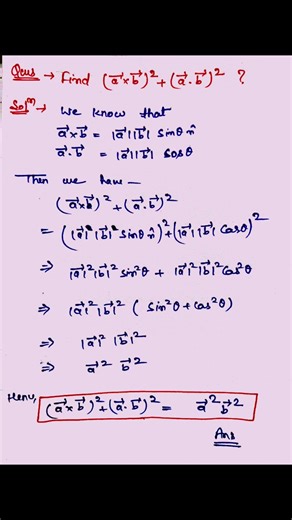 Ques → Find (a⃗×b⃗)² + (a⃗.b⃗)² ?
Solⁿ → We know that
a⃗×b⃗ = |a⃗||b⃗| Sinθ n̂
a⃗.b⃗ = |a⃗||b⃗| cosθ
Then we have —
(a⃗×b⃗)² + (a⃗.b⃗)²
= (|a⃗| |b⃗| Sinθ n̂)² + (|a⃗| |b⃗| Cosθ)²
⇒ |a⃗|² |b⃗|² sin²θ + |a⃗|² |b⃗|² Cos²θ
⇒ |a⃗|² |b⃗|² (Sin²θ + Cos²θ)
⇒ |a⃗|² |b⃗|²
⇒ a⃗² b⃗²
Henu, (a⃗×b⃗)² + (a⃗.b⃗)² = a⃗² b⃗²
Ans